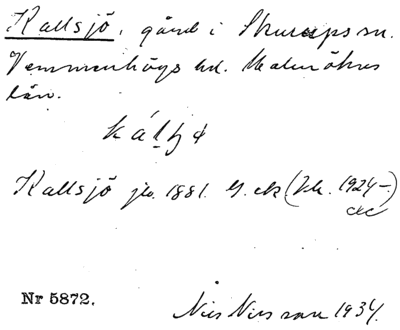 Kallsjö, gård i Skurups sn.
Vemmenhögs hd. Malmöhus
län.
Kallsjö jb. 1881. G. ek. (Jb. 1924-.)
Nr 5872.
Nils Nilsson 1934.